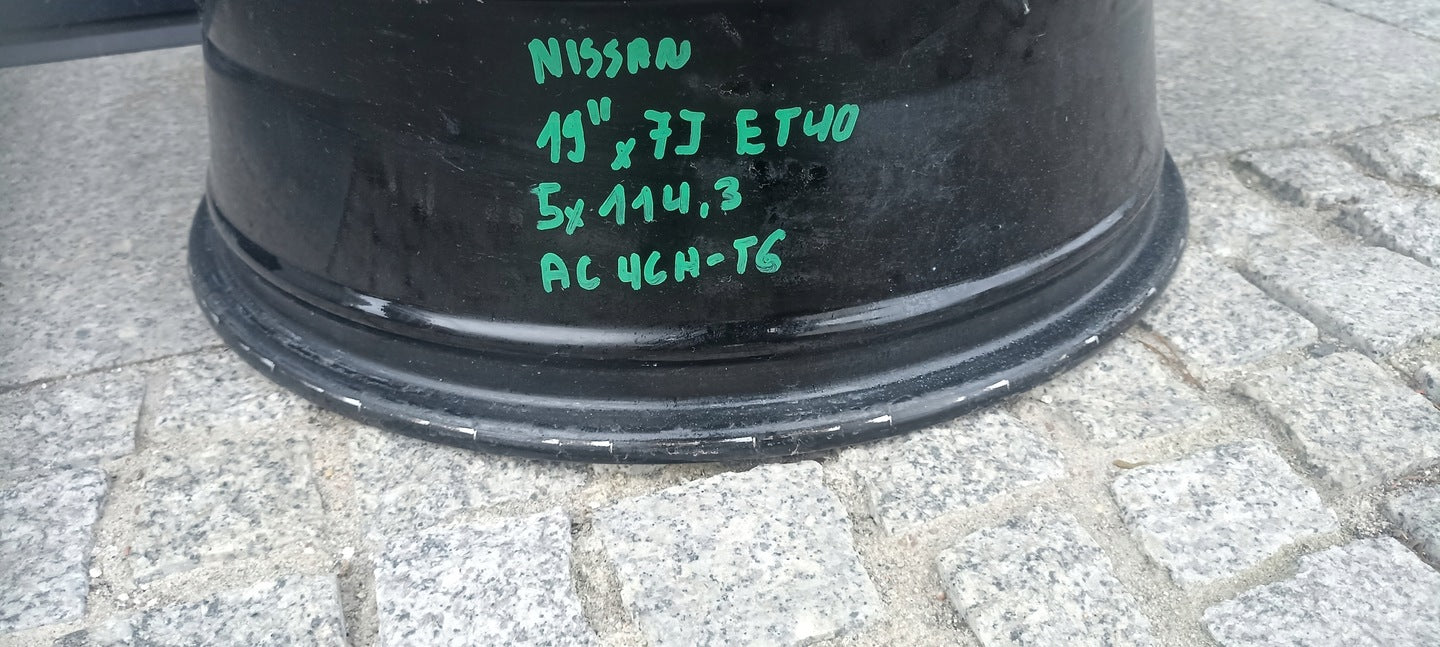 NISSAN
19" x 7J ET40
5x114.3
AC 4CH-T6